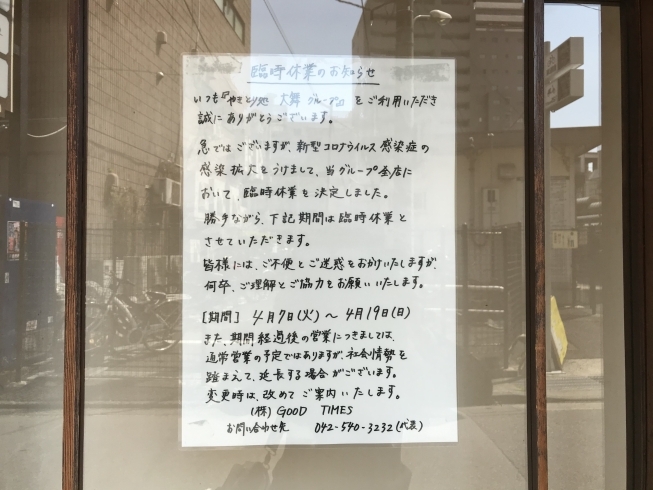 臨時休業のお知らせ
いつも『やきとり処 大舞 グループ』をご利用いただき
誠にありがとうございます。
急ではございますが、新型コロナウイルス感染症の
感染拡大をうけまして、当グループ全店に
おいて、臨時休業を決定しました。
勝手ながら、下記期間は臨時休業と
させていただきます。
皆様には、ご不便とご迷惑をおかけいたしますが、
何卒、ご理解とご協力をお願いいたします。
[期間] 4月7日(火)～4月19日(日)
また、期間経過後の営業につきましては、
通常営業の予定ではありますが、社会情勢を
踏まえて、延長する場合がございます。
変更時は、改めてご案内いたします。
(株)GOOD TIMES
お問い合わせ先 042-540-3232(代表)